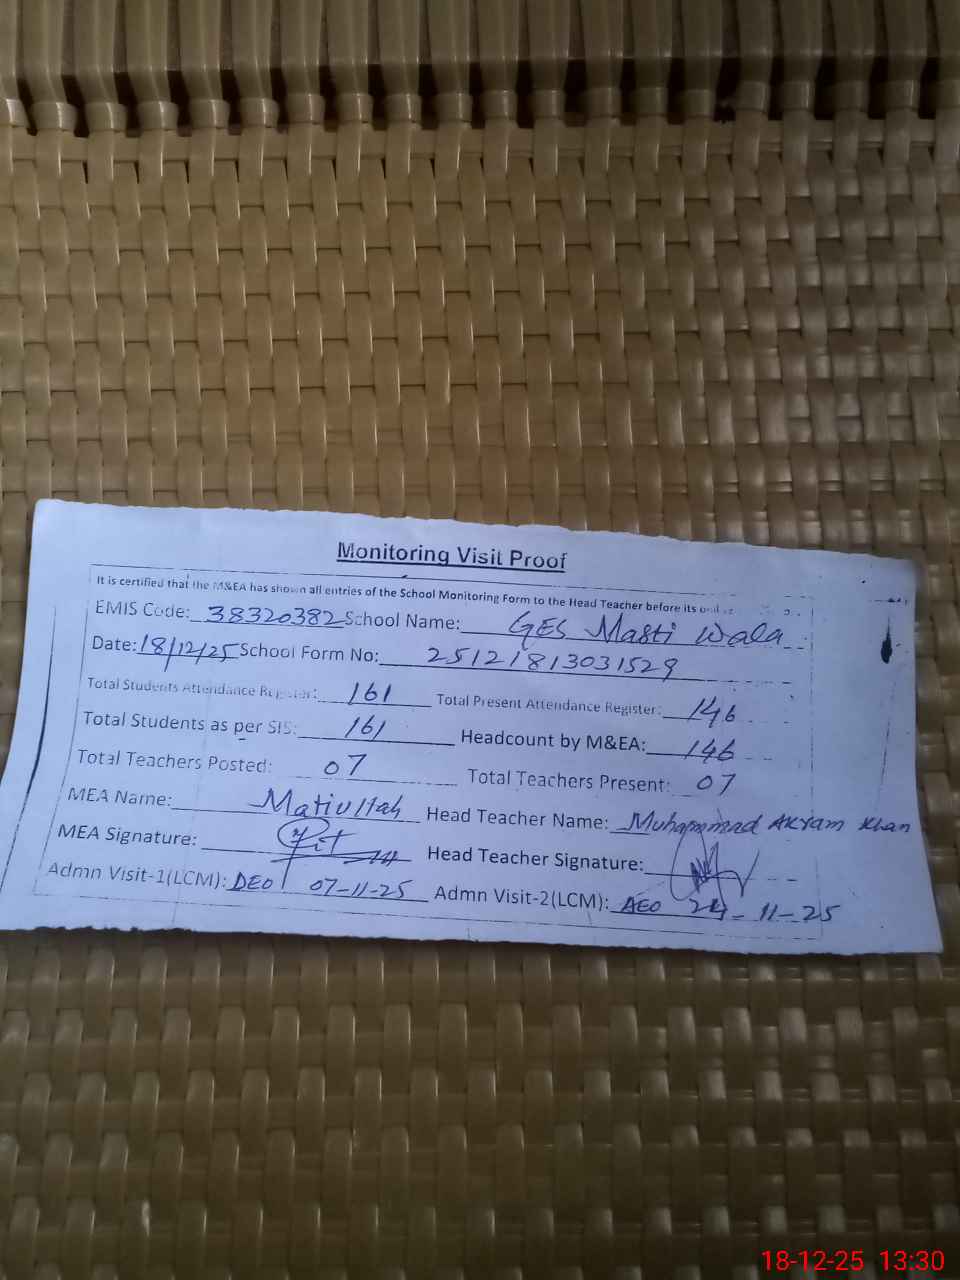 Monitoring Visit Proof
It is certified that the M&EA has shown all entries of the School Monitoring Form to the Head Teacher before its
EMIS Code: 38320382 School Name: GES Masti Wala
Date: 18/12/25 School Form No: 25121813031529
Total Students Attendance Register: 161 Total Present Attendance Register: 146
Total Students as per SIS: 161 Headcount by M&EA: 146
Total Teachers Posted: 07 Total Teachers Present: 07
MEA Name: Matiullah Head Teacher Name: Muhammad Akram Khan
MEA Signature: Head Teacher Signature:
Admn Visit-1(LCM): DEO 07-11-25 Admn Visit-2(LCM): AEO 24-11-25
18-12-25 13:30